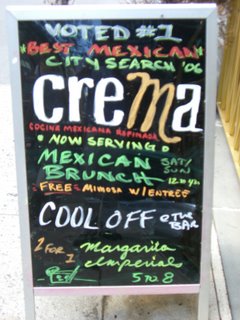 VOTED #1
"BEST MEXICAN"
CITY SEARCH '06
crema
COCINA MEXICANA REFINADA
• NOW SERVING •
MEXICAN SAT/
BRUNCH SUN
• FREE • MIMOSA W/ENTREE
COOL OFF @ THE
BAR
2 FOR 1 margarita
imperial
5 TO 8